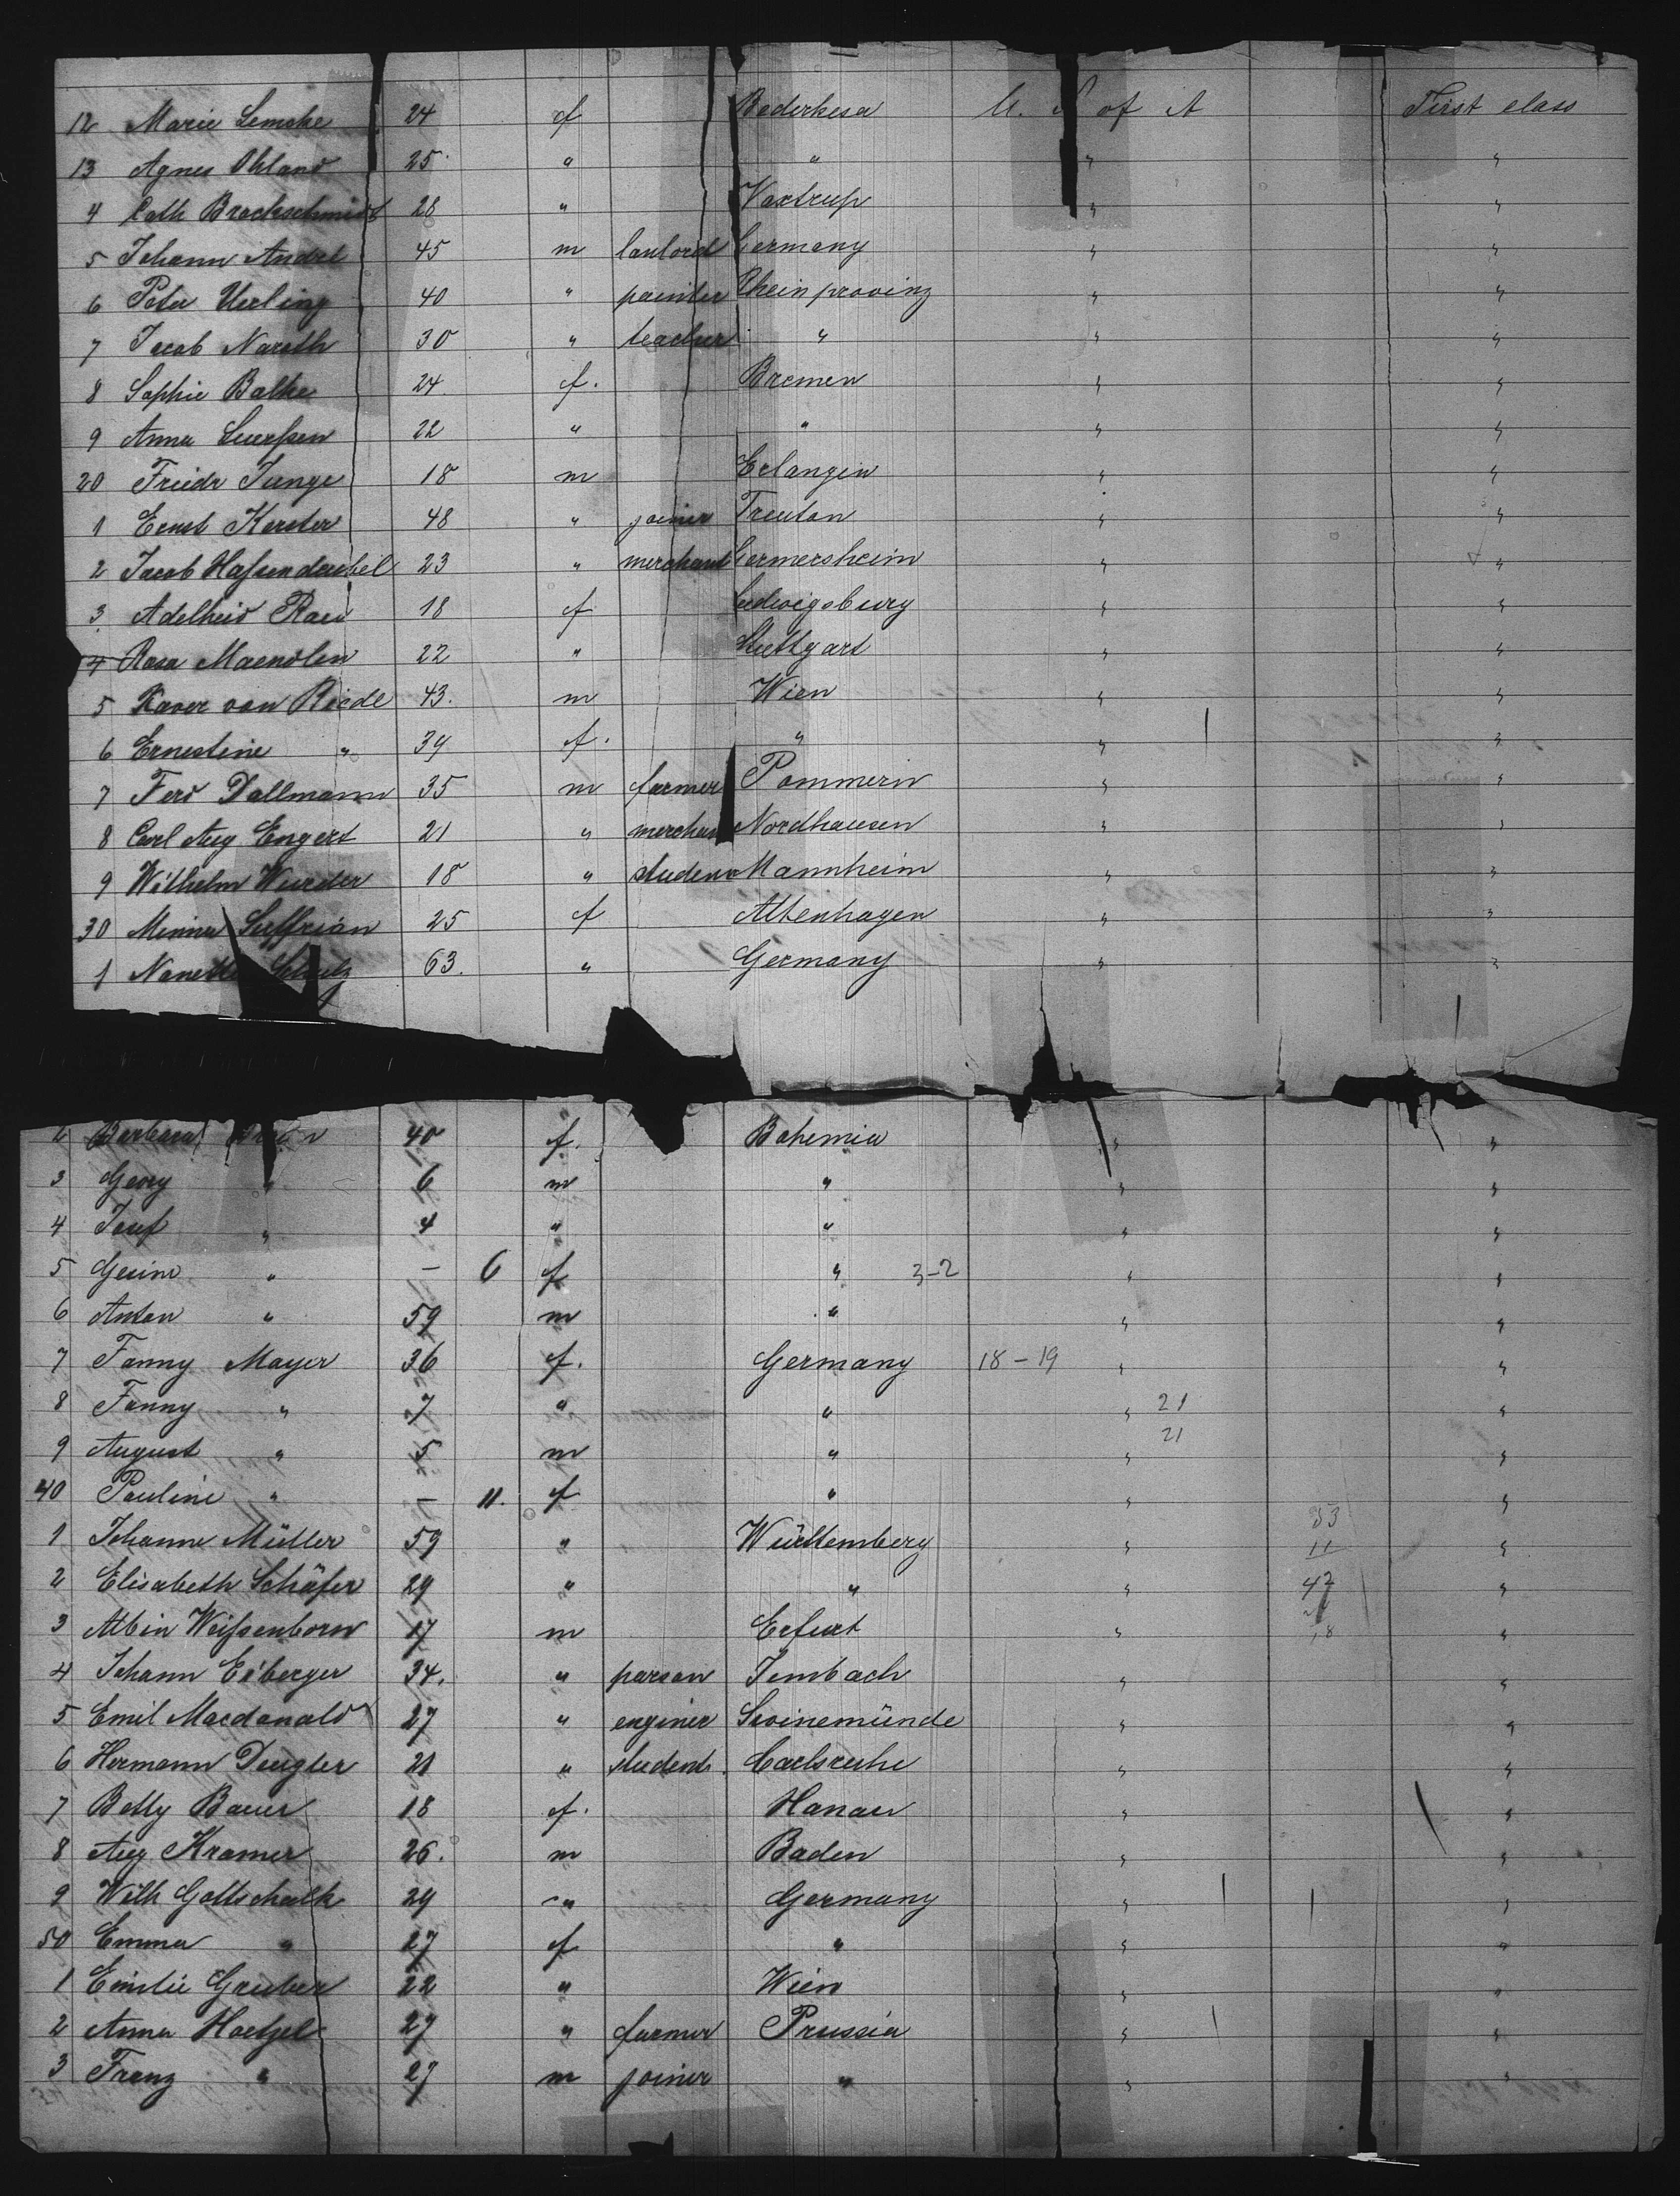 12 Marie Lemcke 24 f Bederkesa U. S of A First class
13 Agnes Ohland 25 " " " "
4 Cath Brockschmidt 28 " Vaxtrup " "
5 Johann Andrel 45 m lanlord Germany " "
6 Peter Uerling 40 " painter Rheinprovinz " "
7 Jacob Narath 30 " teacher " " "
8 Sophie Balke 24 f. Bremen " "
9 Anna Luerssen 22 " " " "
20 Friedr Junge 18 m Erlangen " "
1 Ernst Kerster 48 " joiner Treuton " "
2 Jacob Hassendeubel 23 " merchant Germersheim " "
3 Adelheid Rau 18 f Ludwigsburg " "
4 Rosa Maendlen 22 " Stuttgart " "
5 Xaver von Riedl 43. m Wien " "
6 Ernestine " 39 f. " " "
7 Ferd Dallmann 35 m farmer Pommern " "
8 Carl Aug Engert 21 " merchan Nordhausen " "
9 Wilhelm Wurder 18 " student Mannheim " "
30 Minna Suffrian 25 f Altenhagen " "
1 Nanette Schulz 63. " Germany " "
2 Barbara 40 f. Bohemia " "
3 Georg " 6 m " " "
4 Josef " 4 " " " "
5 Gesine " – 6 f " 3-2 " "
6 Anton " 59 m " " "
7 Fanny Mayer 36 f. Germany 18-19 " "
8 Fanny " 7 " " " 21 "
9 August " 5 m " " 21 "
40 Pauline " – 11. f " " "
1 Johanne Müller 59 " Württemberg " 53 11 "
2 Elisabeth Schäfer 29 " " " 42 "
3 Albin Weissenborn 17 m Erfurt " 18 "
4 Johann Eiberger 34. " parson Jembach " "
5 Emil Macdonald 27 " enginer Swinemünde " "
6 Hermann Dengler 21 " student. Carlsruhe " "
7 Betty Bauer 18 f. Hanau " "
8 Aug Kramer 26. m Baden " "
9 Wilh Gottschalk 29 " Germany " "
50 Emma " 27 f " " "
1 Emilie Gruber 22 " Wien " "
2 Anna Hoetzel 27 " farmer Prussia " "
3 Franz " 27 m joiner " " "